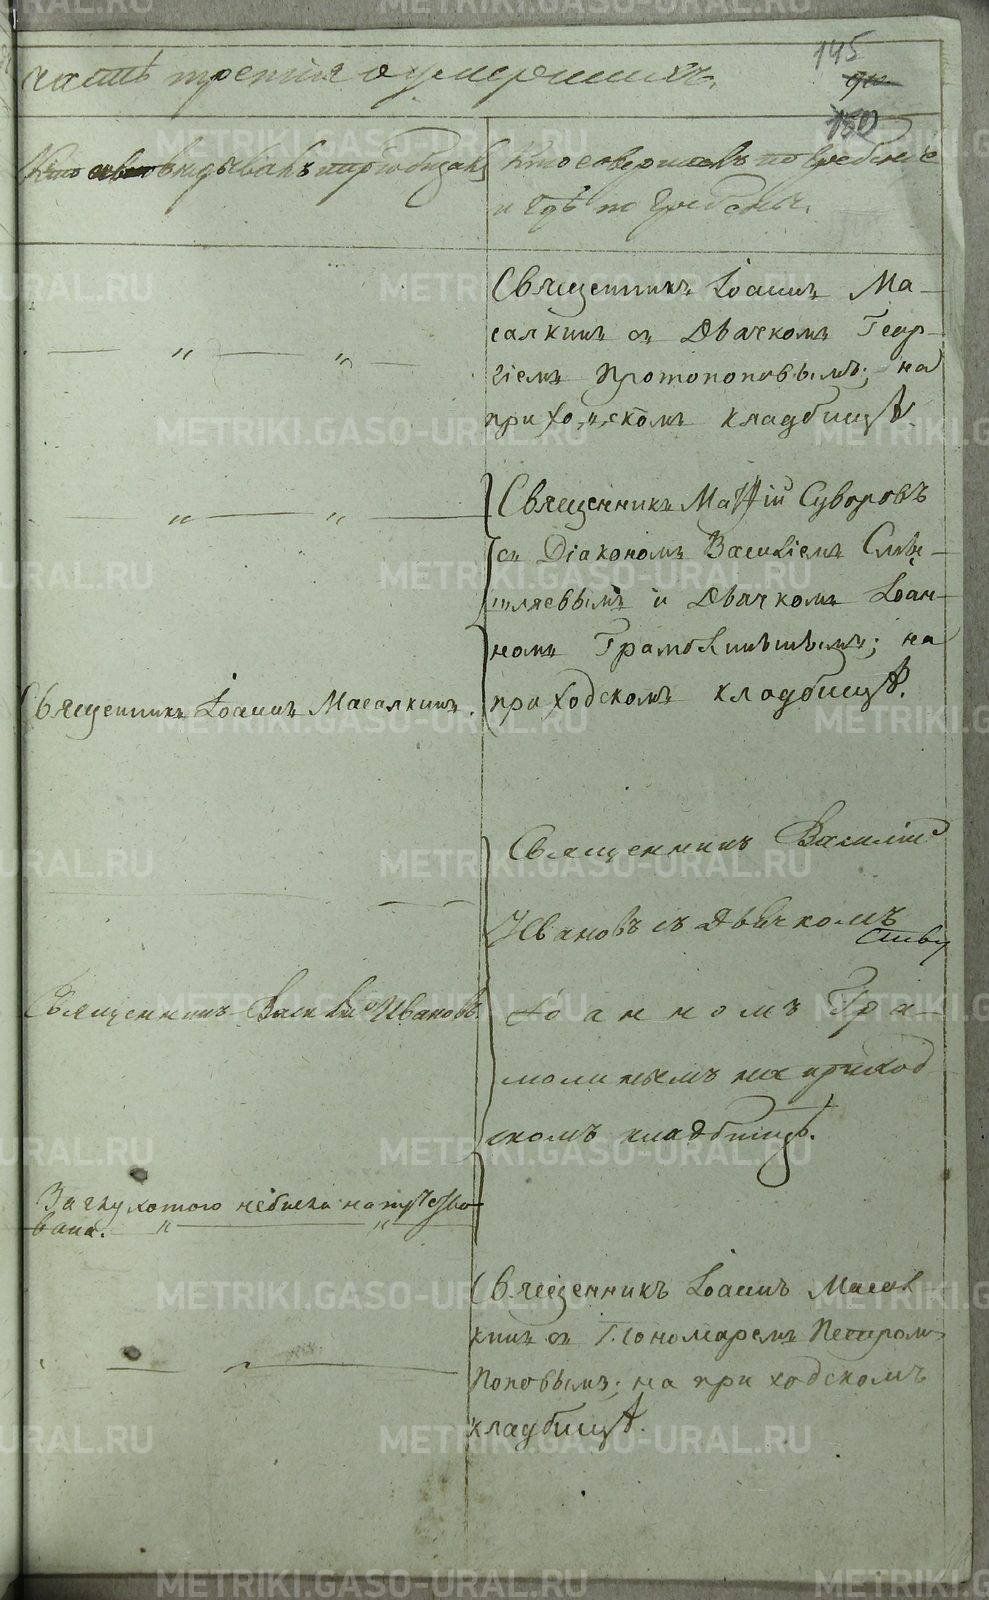 145
150
часть третия о умершихъ.
Кто исповѣдывалъ и приобщалъ
Кто совершалъ погребеніе
и гдѣ погребены.
Священникъ Іоаннъ Ма-
салкинъ съ Дьячкомъ Геор-
гіемъ Протопоповымъ; на
приходскомъ кладбищѣ.
Священникъ Матѳій Суворовъ
съ Діакономъ Василіемъ Смы-
шляевымъ и Дьячкомъ Іоан-
номъ Грамолинымъ; на
приходскомъ кладбищѣ.
Священникъ Іоаннъ Масалкинъ.
Священникъ Василій
Ивановъ съ Дьячкомъ
Іоанномъ Гра-
молинымъ на приход
скомъ кладбищѣ.
Священникъ Василій Ивановъ.
За глухотою небыла напутство-
вана.
Священникъ Іоаннъ Масал
кинъ съ Пономаремъ Петромъ
Поповымъ; на приходскомъ
кладбищѣ.
METRIKI.GASO-URAL.RU